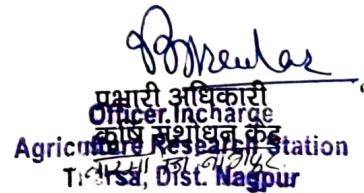 प्रभारी अधिकारी
Officer Incharge
कृषि संशोधन केंद्र
Agriculture Research Station
तारसा जि. नागपूर
Tharsa, Dist. Nagpur